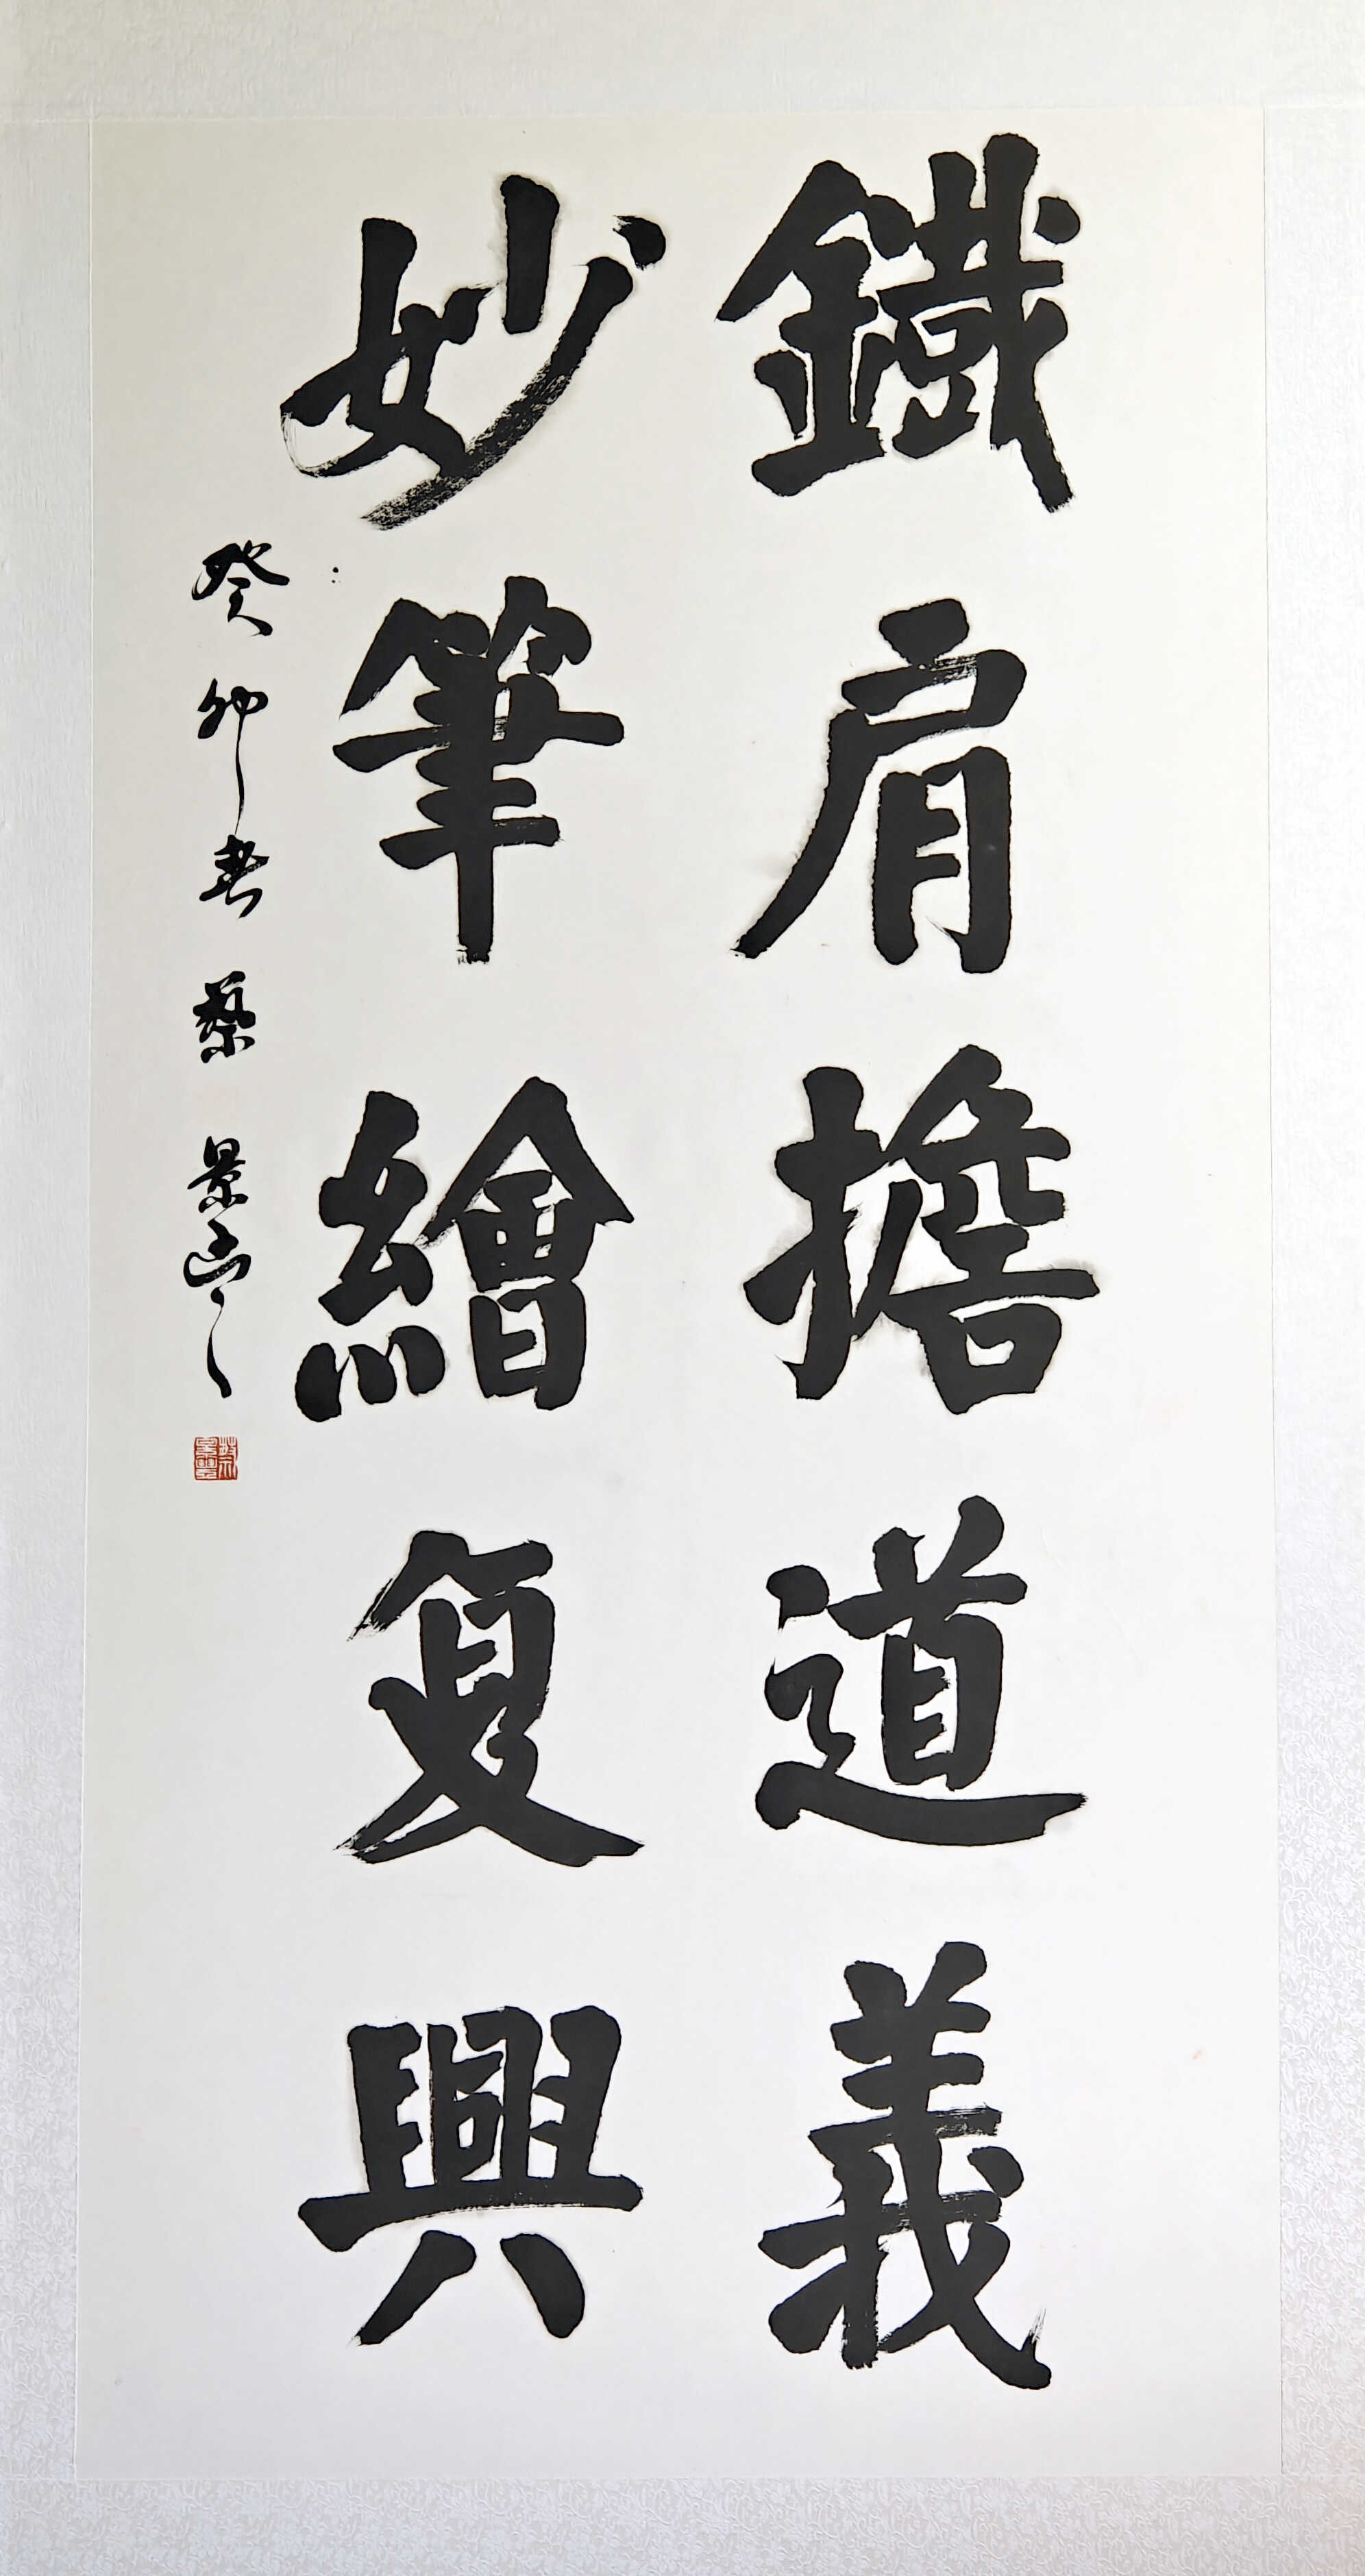 鐵肩擔道義
妙筆繪复興
癸卯春 蔡景